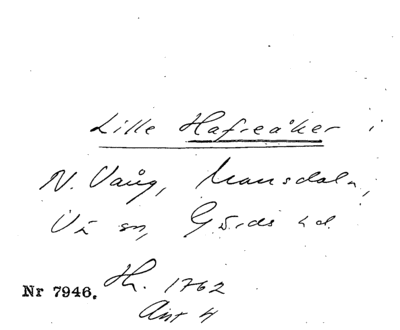 Lille Hafreåker i
N. Vång, Mansdala,
Vå sn, Gärds hd.
Nr 7946. Th. 1762
Ant 4